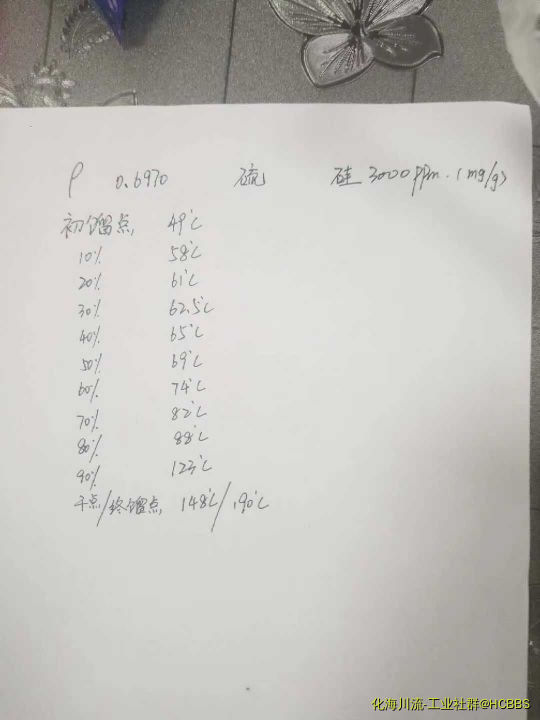 ρ 0.6970 硫 硅 3000ppm.(mg/g)
初馏点 49℃
10% 58℃
20% 61℃
30% 62.5℃
40% 65℃
50% 69℃
60% 74℃
70% 82℃
80% 88℃
90% 123℃
干点/终馏点 148℃/190℃
化海川流-工业社群@HCBBS